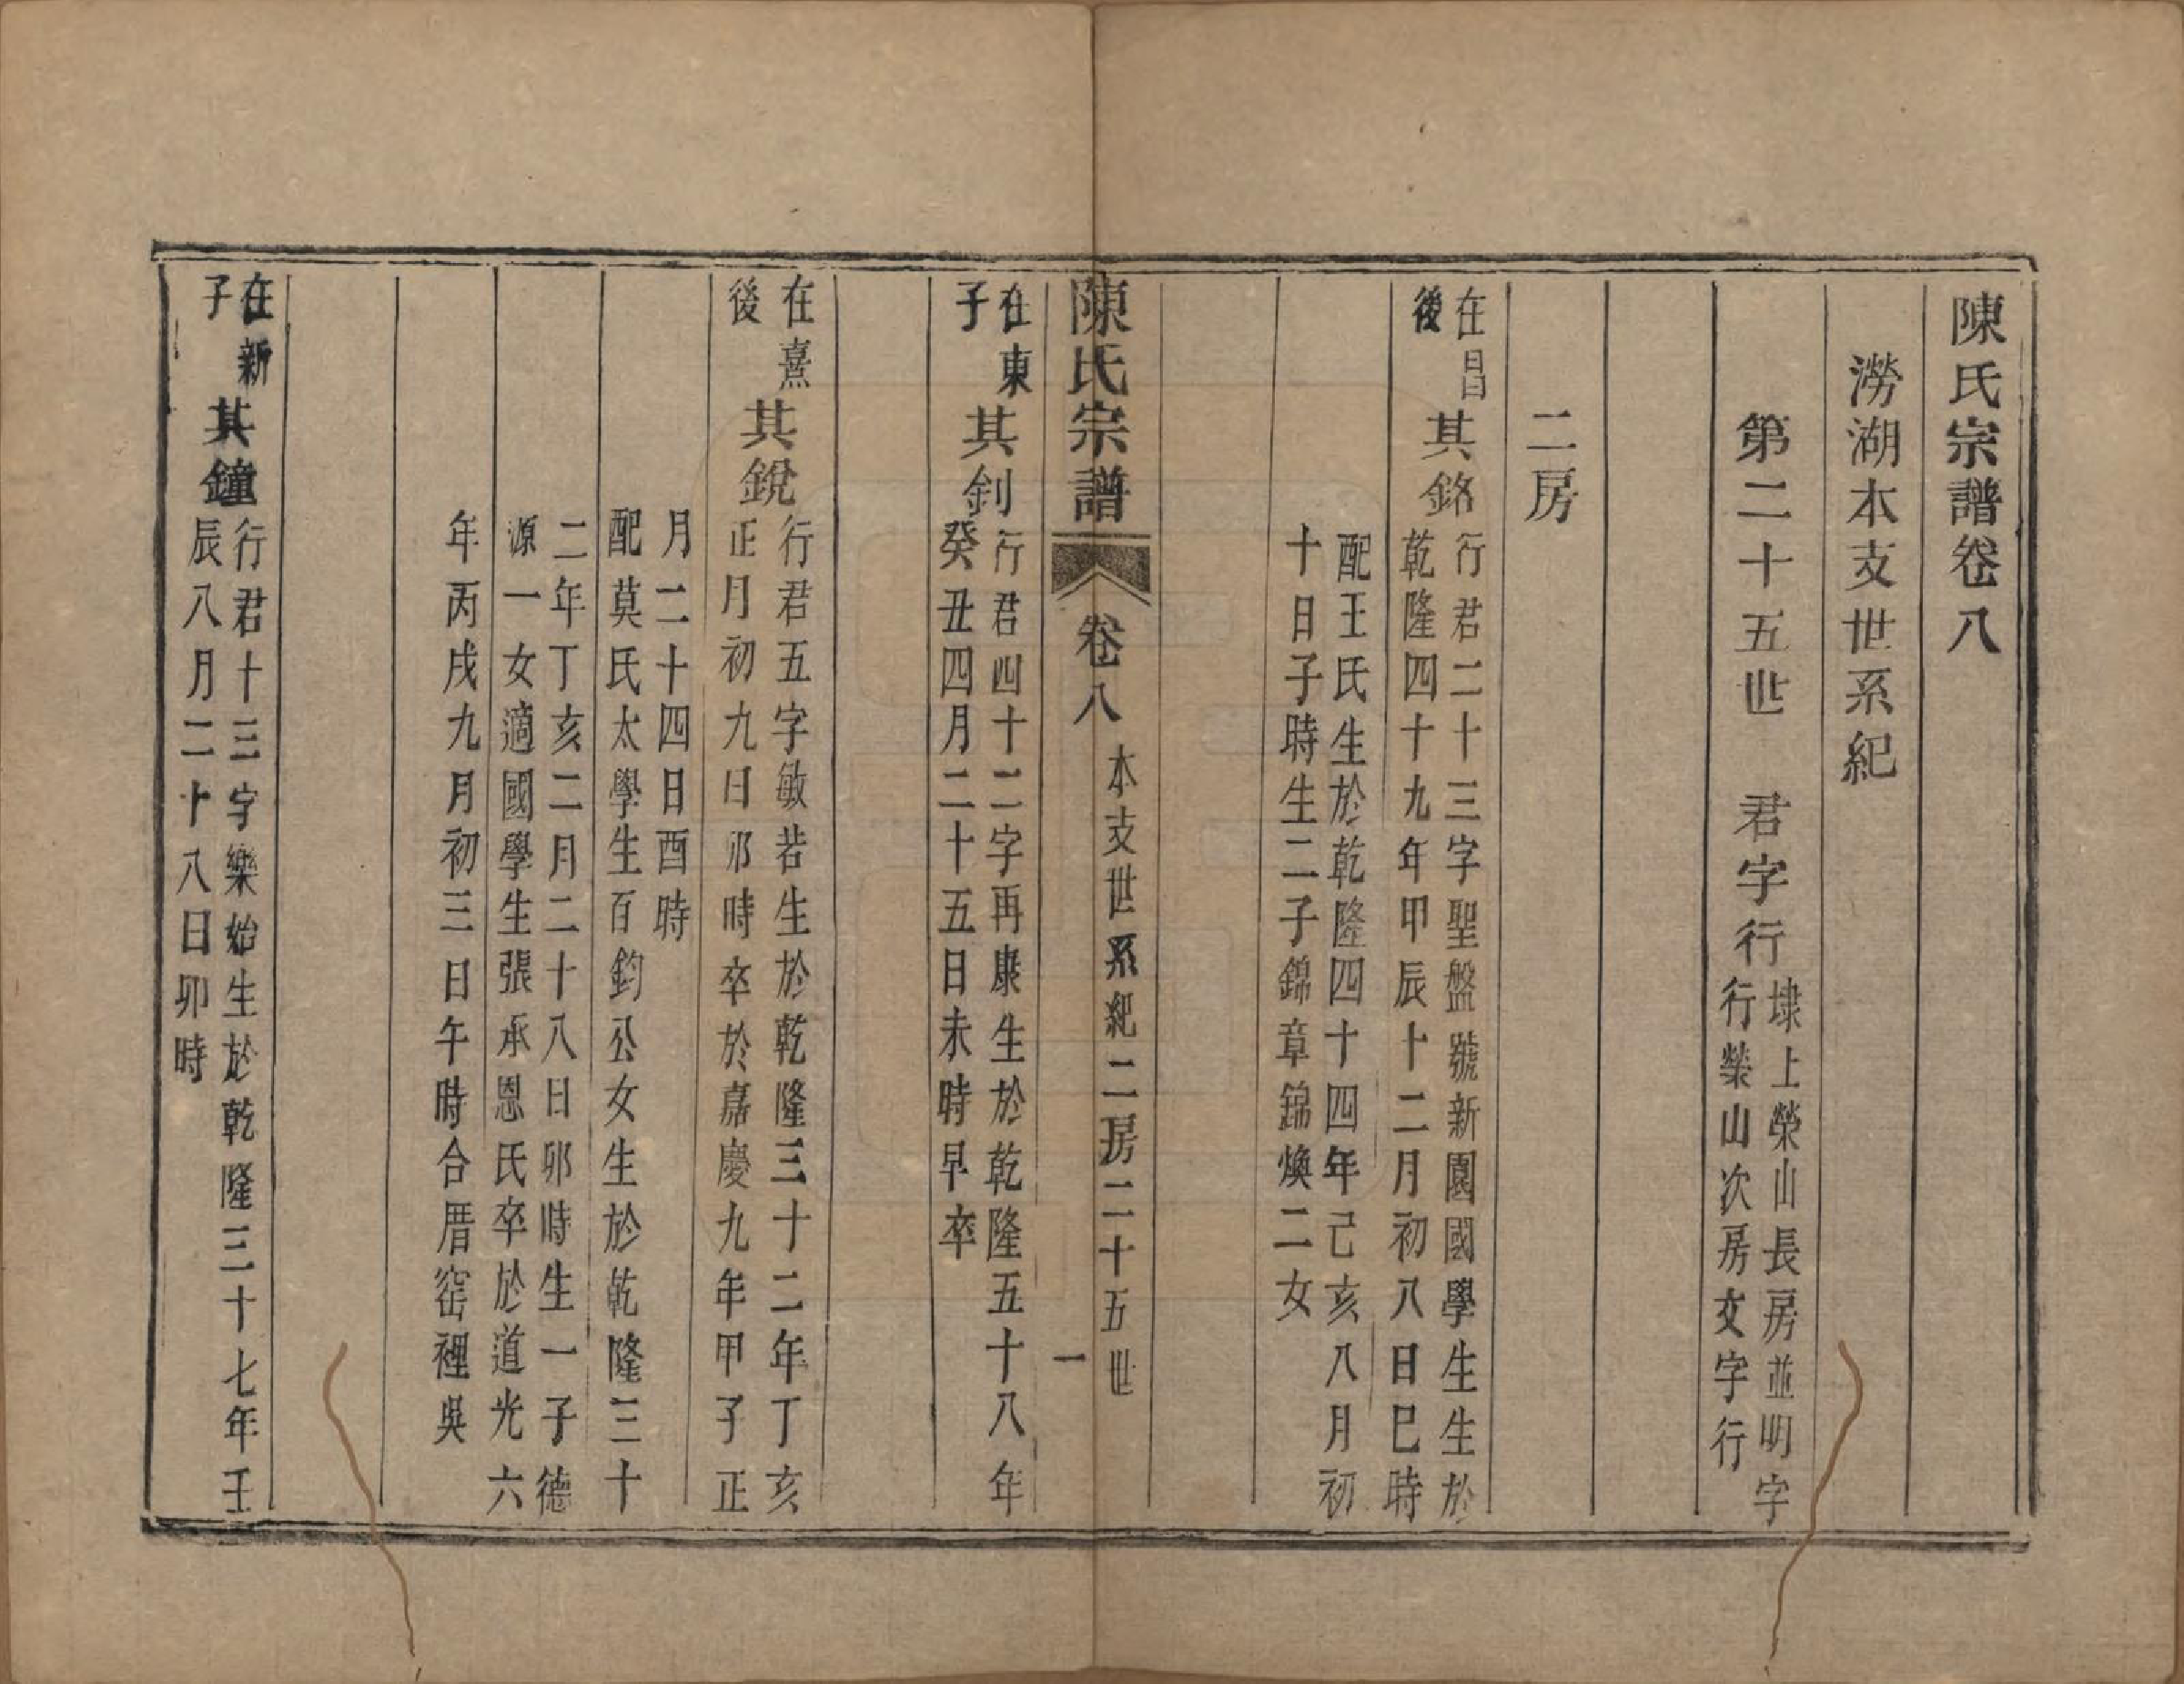 陳氏宗譜卷八
澇湖本支世系紀
第二十五世　君字行
埭上榮山長房並明字
行榮山次房文字行
二房
在昌
後
其銘
行君二十三字聖盤號新園國學生生於
乾隆四十九年甲辰十二月初八日巳時
配王氏生於乾隆四十四年己亥八月初
十日子時生二子錦章錦煥二女
陳氏宗譜
卷八
本支世系紀二房二十五世
一
在東
子
其釗
行君四十二字再康生於乾隆五十八年
癸丑四月二十五日未時早卒
在熹
後
其銳
行君五字敏若生於乾隆三十二年丁亥
正月初九日卯時卒於嘉慶九年甲子正
月二十四日酉時
配莫氏太學生百鈞公女生於乾隆三十
二年丁亥二月二十八日卯時生一子德
源一女適國學生張承恩氏卒於道光六
年丙戌九月初三日午時合厝窑裡吳
在新
子
其鐘
行君十三字樂始生於乾隆三十七年壬
辰八月二十八日卯時